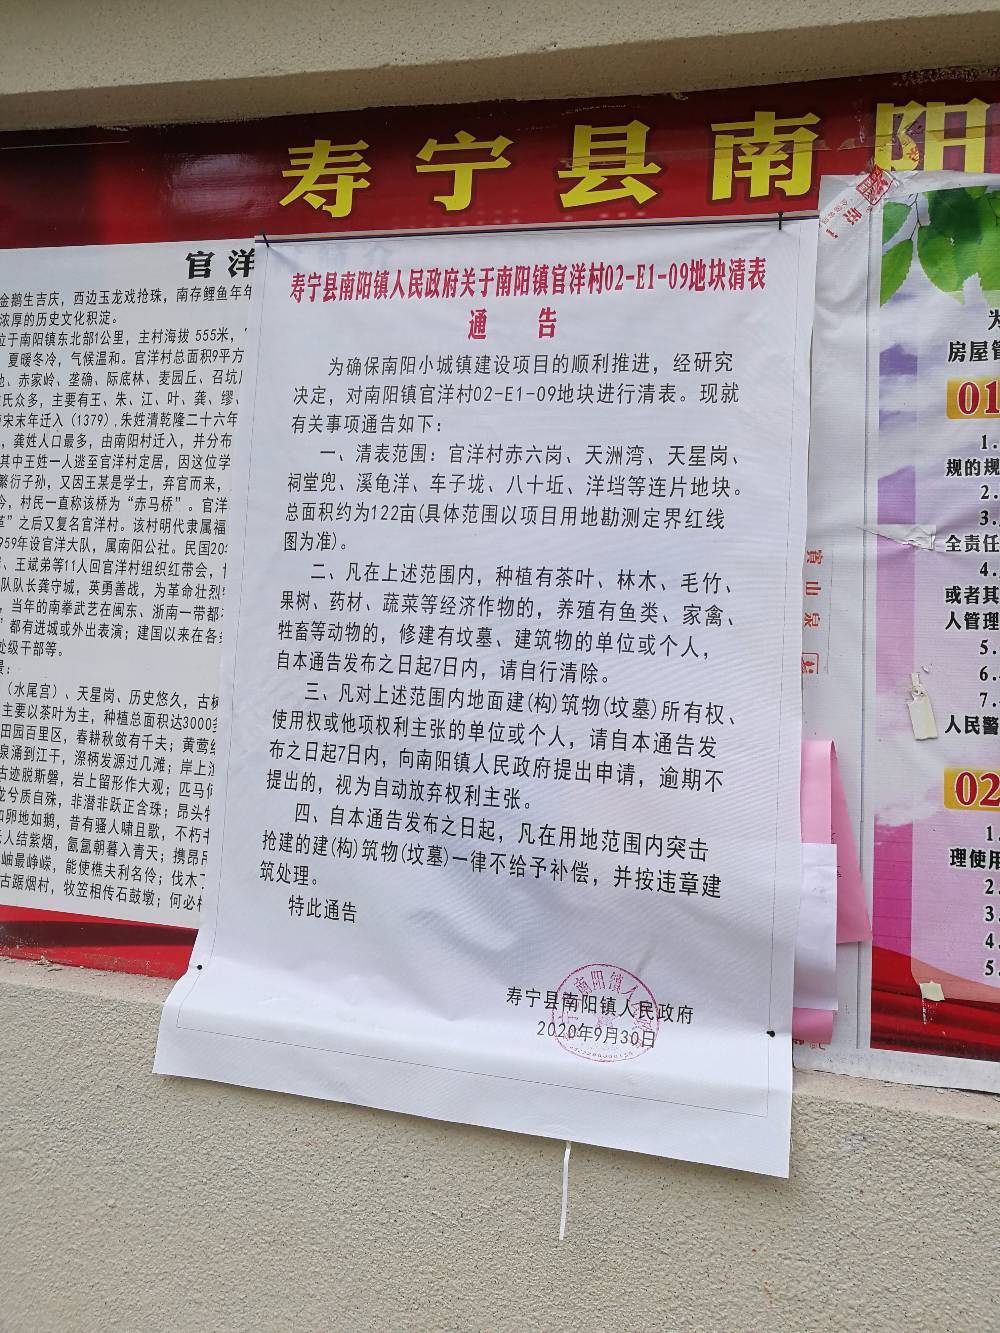 寿宁县南阳
官洋
金鹅生吉庆，西边玉龙戏抢珠，南存鲤鱼年年
浓厚的历史文化积淀。
位于南阳镇东北部1公里，主村海拔 555米，
夏暖冬冷，气候温和。官洋村总面积9平方
、赤家岭、垄确、际底林、麦园丘、召坑
氏众多，主要有王、朱、江、叶、龚、缪、
宋末年迁入（1379），朱姓清乾隆二十六年
，龚姓人口最多，由南阳村迁入，并分布
其中王姓一人逃至官洋村定居，因这位学
繁衍子孙，又因王某是学士，弃官而来，
今，村民一直称该桥为“赤马桥”。官洋
”之后又复名官洋村。该村明代隶属福
959年设官洋大队，属南阳公社。民国20
、王斌弟等11人回官洋村组织红带会，
队队长龚守城，英勇善战，为革命壮烈
，当年的南拳武艺在闽东、浙南一带都
”都有进城或外出表演；建国以来在各
处级干部等。
景：
（水尾宫）、天星岗、历史悠久，古树
主要以茶叶为主，种植总面积达3000多
田园百里区，春耕秋敛有千夫；黄莺
泉涌到江干，涤柄发源过几滩；岸上
古迹脱斯磐，岩上留形作大观；匹马
龙兮质自殊，非潜非跃正含珠；昂头
如卵地如鹅，昔有骚人啸且歌，不朽
人结紫烟，氤氲朝暮入青天；携
岫最峥嵘，能使樵夫利名伶；伐木丁
古踞烟村，牧笠相传石鼓墩；何必
寿宁县南阳镇人民政府关于南阳镇官洋村02-E1-09地块清表
通 告
为确保南阳小城镇建设项目的顺利推进，经研究
决定，对南阳镇官洋村02-E1-09地块进行清表。现就
有关事项通告如下：
一、清表范围：官洋村赤六岗、天洲湾、天星岗、
祠堂兜、溪龟洋、车子垅、八十坵、洋垱等连片地块。
总面积约为122亩(具体范围以项目用地勘测定界红线
图为准)。
二、凡在上述范围内，种植有茶叶、林木、毛竹、
果树、药材、蔬菜等经济作物的，养殖有鱼类、家禽、
牲畜等动物的，修建有坟墓、建筑物的单位或个人，
自本通告发布之日起7日内，请自行清除。
三、凡对上述范围内地面建(构)筑物(坟墓)所有权、
使用权或他项权利主张的单位或个人，请自本通告发
布之日起7日内，向南阳镇人民政府提出申请，逾期不
提出的，视为自动放弃权利主张。
四、自本通告发布之日起，凡在用地范围内突击
抢建的建(构)筑物(坟墓)一律不给予补偿，并按违章建
筑处理。
特此通告
寿宁县南阳镇人民政府
2020年9月30日
富山泉
为
房屋管
01
1.
规的规
2.
3.
全责任
4.
或者其
人管理
5.
6.
7.
人民警
02
1.
理使用
2.
3.
4.
5.